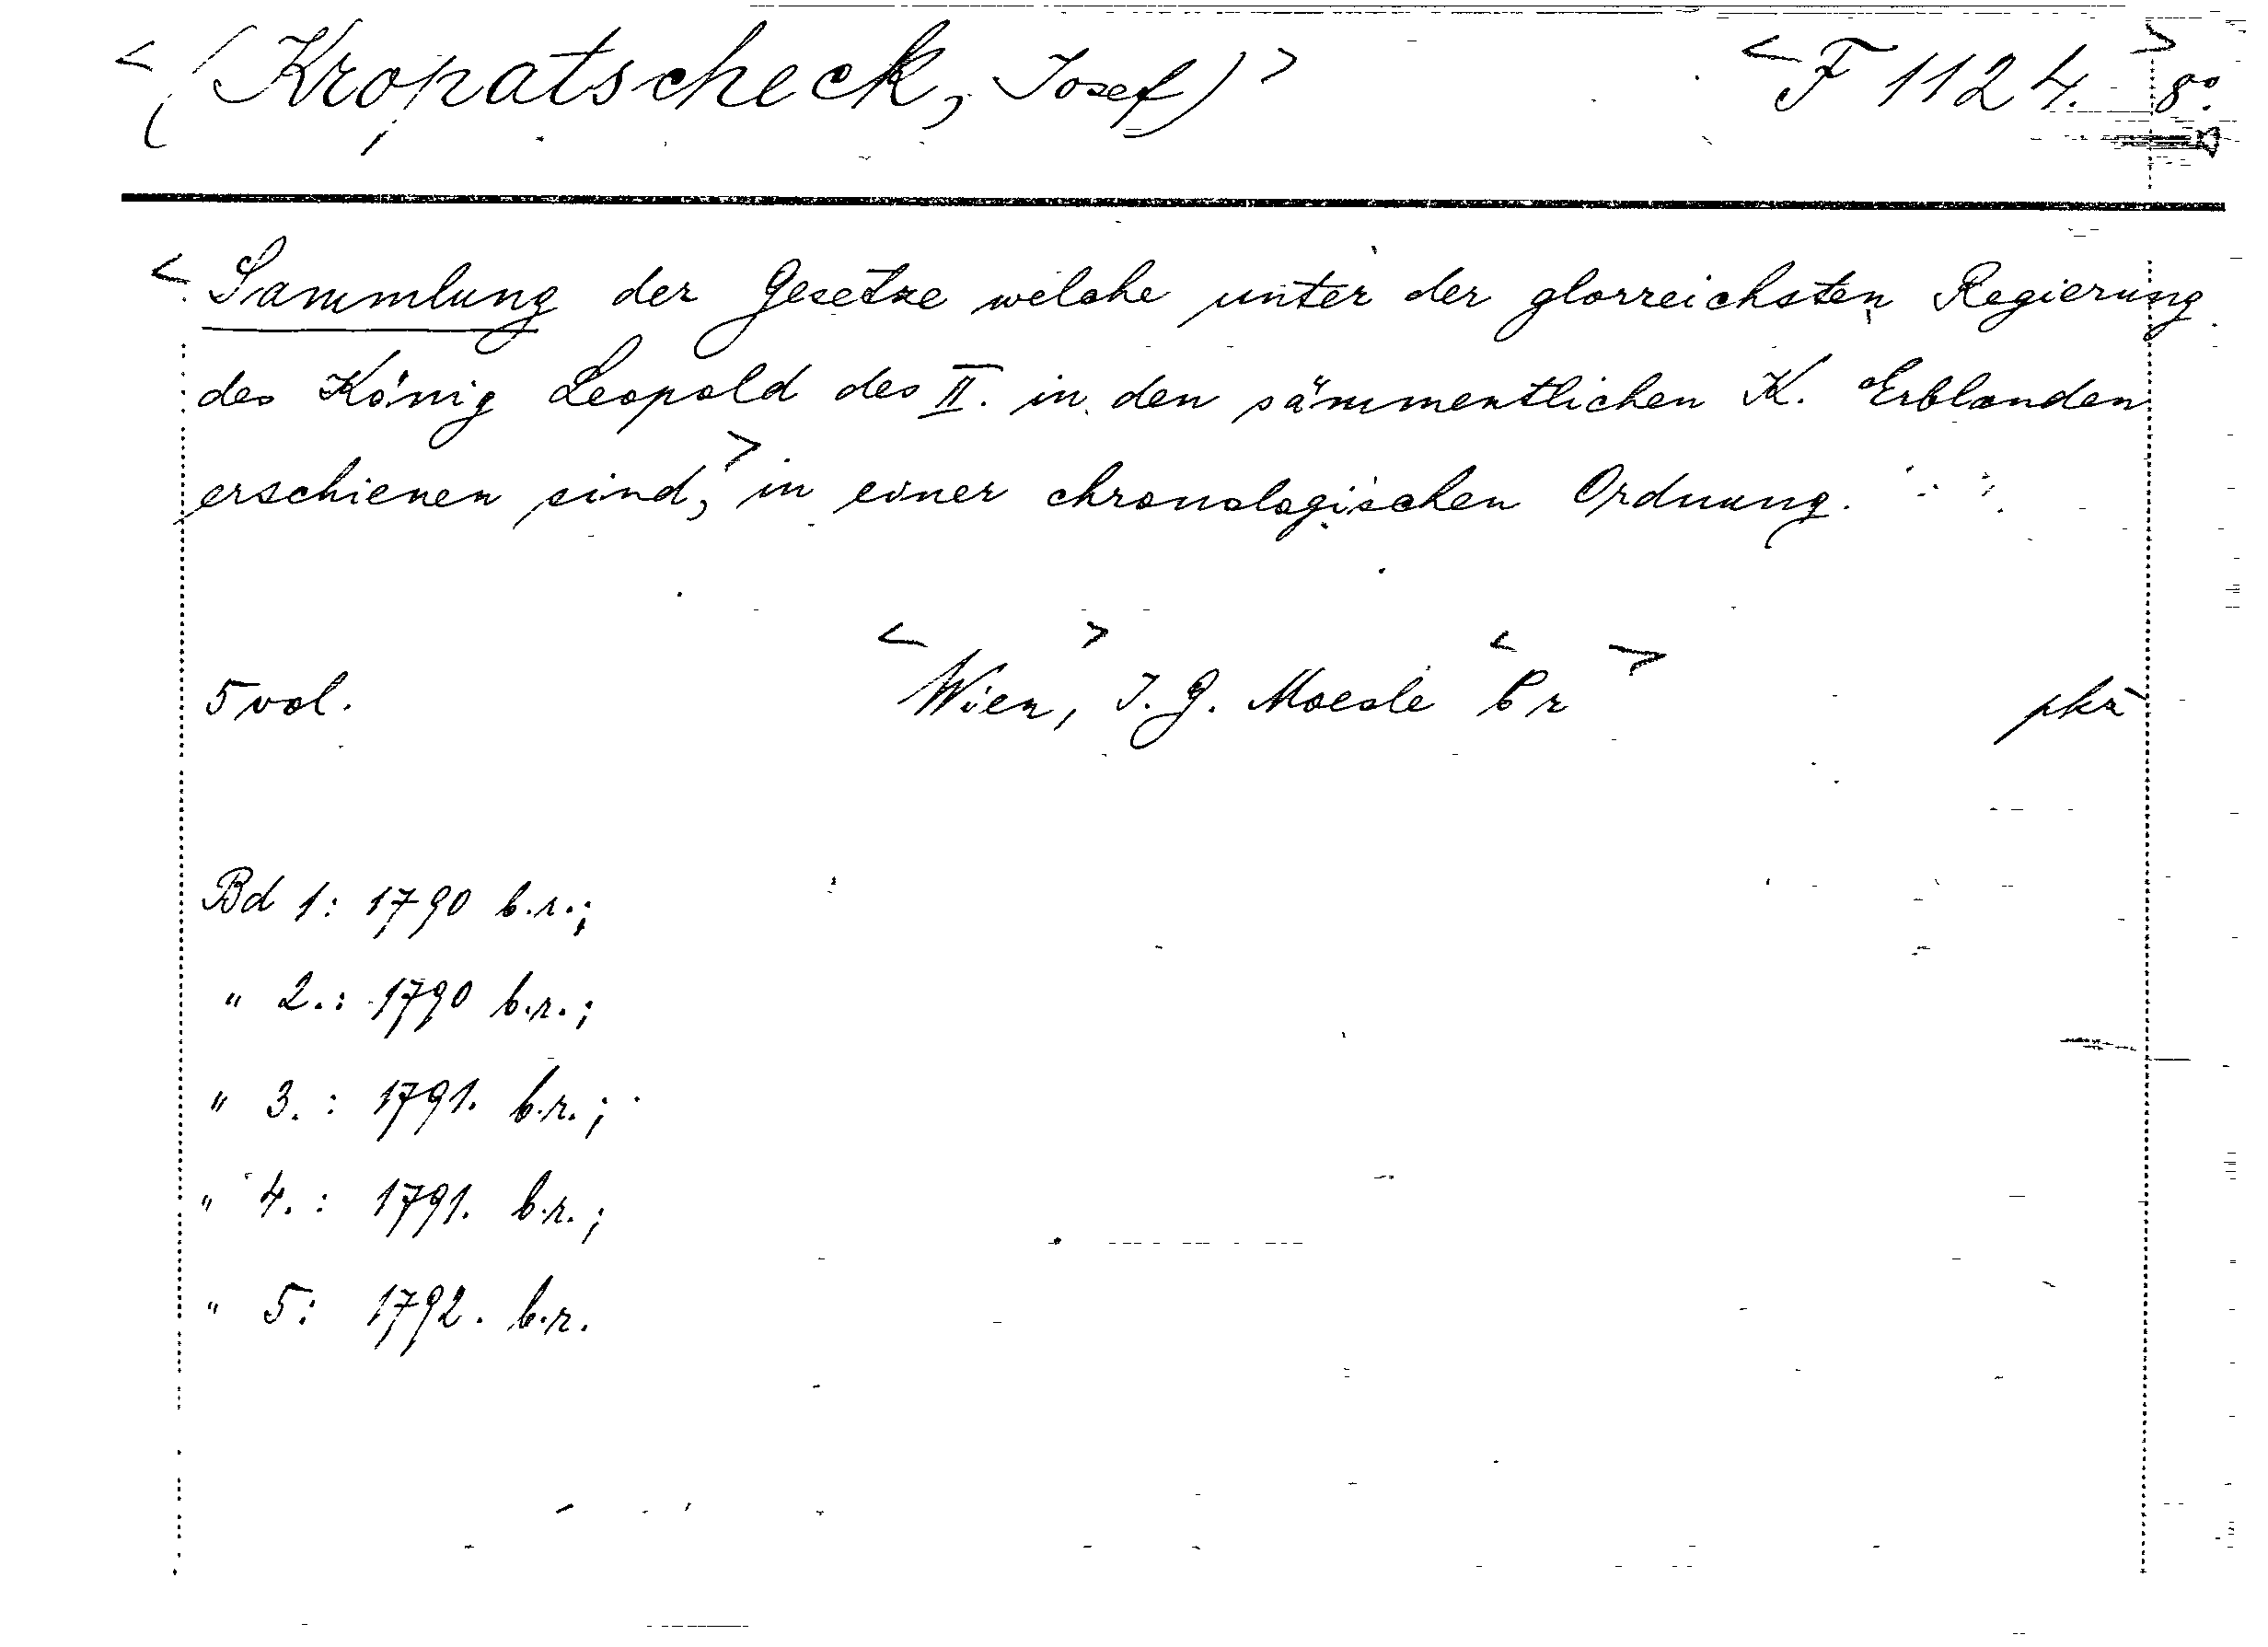 < (Kropatscheck, Josef) > < F 1124. > 8º.
< Sammlung der Gesetze welche unter der glorreichsten Regierung
des König Leopold des II. in den sämmentlichen K. Erblanden
erschienen sind, > in einer chronologischen Ordnung.
5 vol. < Wien, > J. G. Moesle < b r >
Bd 1: 1790 b.r.;
" 2.: 1790 b.r.;
" 3.: 1791. b.r.;
" 4.: 1791. b.r.;
" 5: 1792. b.r.